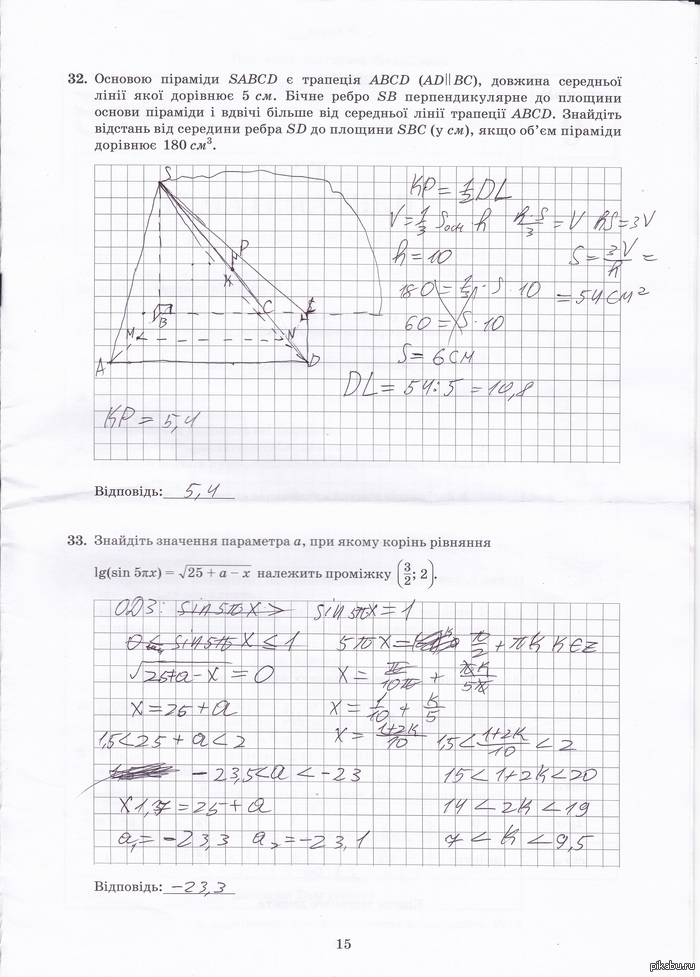 32. Основою піраміди SABCD є трапеція ABCD (AD||BC), довжина середньої
лінії якої дорівнює 5 см. Бічне ребро SB перпендикулярне до площини
основи піраміди і вдвічі більше від середньої лінії трапеції ABCD. Знайдіть
відстань від середини ребра SD до площини SBC (у см), якщо об'єм піраміди
дорівнює 180 см³.
S
P
K
B
C
L
M
N
A
D
KP = 1/2 DL
V = 1/3 Sосн h
h·S/3 = V
hS = 3V
h = 10
S = 3V/h =
180 = 1/3 · S · 10
= 54 см²
60 = S · 10
S = 6 см
DL = 54 : 5 = 10,8
KP = 5,4
Відповідь: 5,4
33. Знайдіть значення параметра a, при якому корінь рівняння
lg(sin 5πx) = √(25 + a − x) належить проміжку (3/2; 2).
ОДЗ: sin 5πx >
sin 5πx = 1
sin 5πx ≤ 1
5πx = π/2 + πk k∈Z
√(25+a−x) = 0
x = π/10π + πk/5π
x = 25 + a
x = 1/10 + k/5
1,5 < 25 + a < 2
x = 1+2k/10
1,5 < 1+2k/10 < 2
−23,5 < a < −23
15 < 1+2k < 20
x 1,7 = 25 + a
14 < 2k < 19
a₁ = −23,3 a₂ = −23,1
7 < k < 9,5
Відповідь: −23,3
15
pikabu.ru